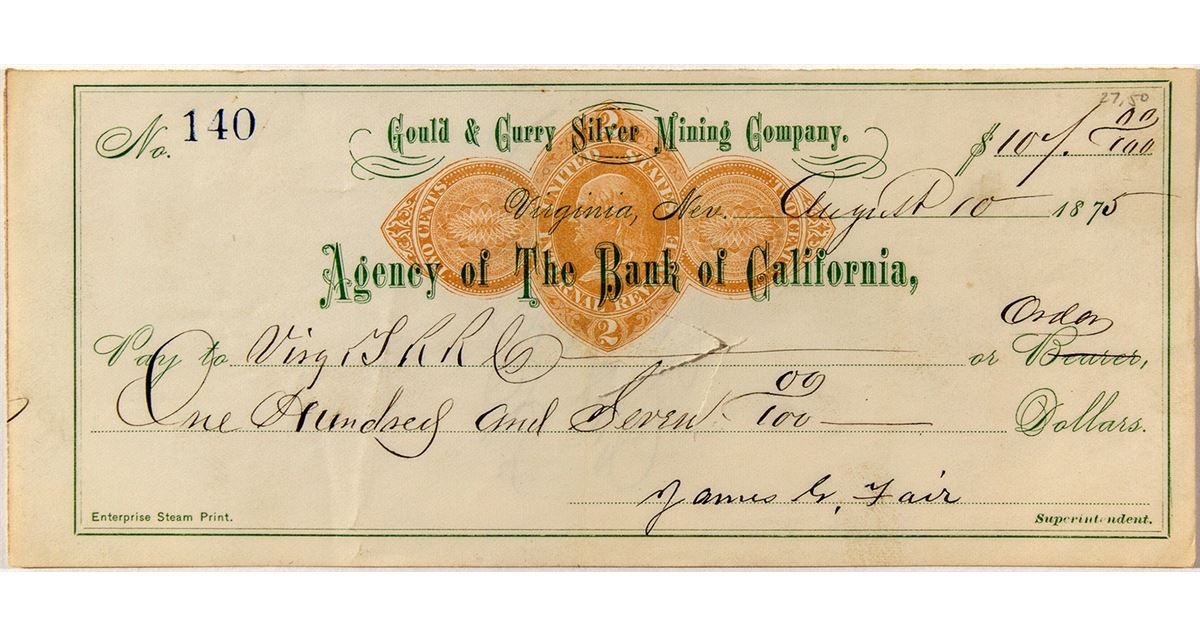 27,50
No. 140
Gould & Curry Silver Mining Company.
$107. 00/100
Virginia, Nev. August 10 1875
Agency of The Bank of California,
Order
Pay to Virg. T R R Co or Bearer,
One Hundred and Seven 00/100
Dollars.
James G. Fair
Enterprise Steam Print.
Superintendent.
2
UNITED STATES
INTERNAL REVENUE
TWO CENTS
TWO CENTS
2